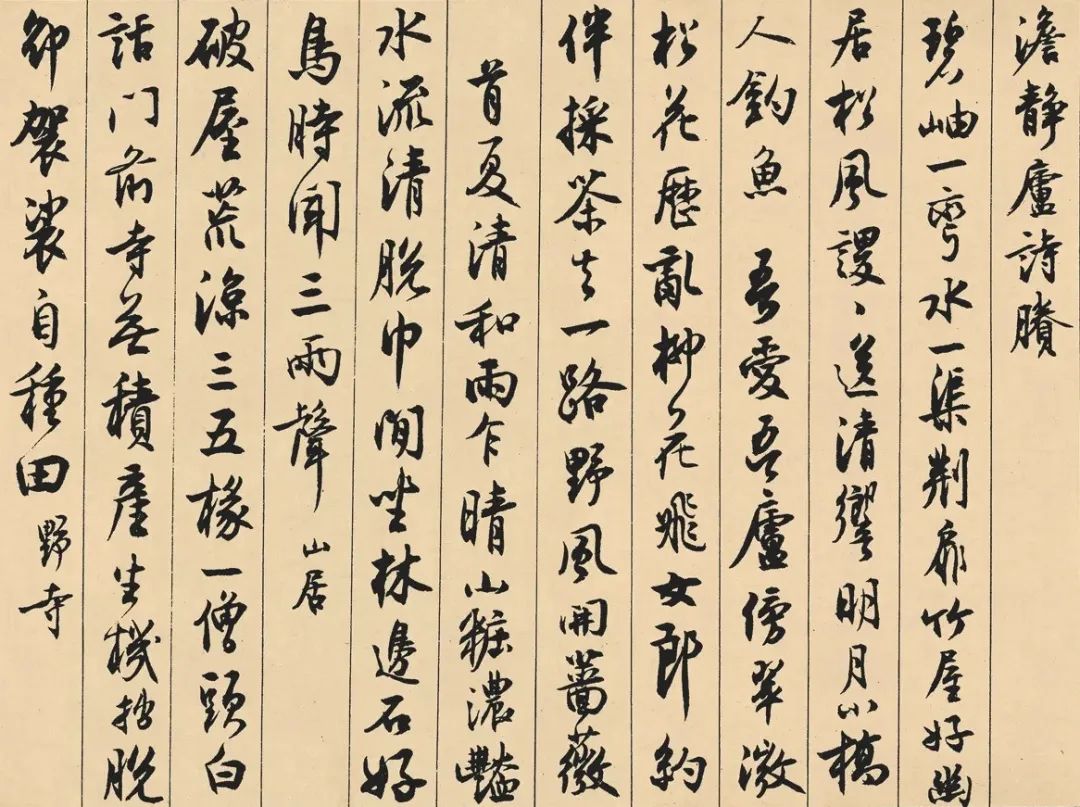 澹静廬詩賸
碧岫一彎水一渠荆扉竹屋好幽
居松風謖〻送清響明月小橋
人釣魚 吾愛吾廬傍翠微
松花歷亂柳花飛女郎約
伴採茶去一路野風開薔薇
首夏清和雨乍晴山糚濃豔
水流清脱巾閒坐林邊石好
鳥時聞三兩聲 山居
破屋荒涼三五椽一僧頭白
話門前寺無積產生機拙脱
卻袈裟自種田 野寺